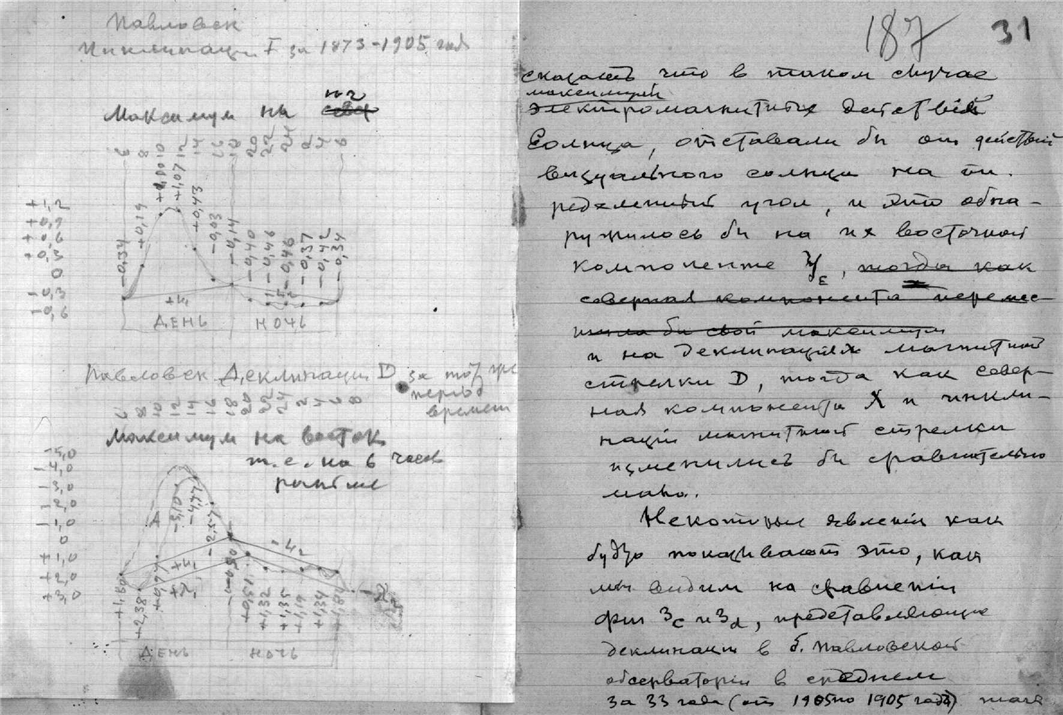 Павловск
Инклинации I за 1873-1905 год
Максимум на юг
6 8 10 12 14 16 18 20 22 24 2 4 6
+1,2
+0,9
+0,6
+0,3
0
-0,3
-0,6
-0,34 +0,19 +1,07 +0,43 -0,03 -0,14 -0,40 -0,46 -0,46 -0,37 -0,42 -0,34
ДЕНЬ НОЧЬ
Павловск Деклинации D за тот же
период
времени
6 8 10 12 14 16 18 20 22 24 2 4 6 8
Максимум на восток
т.е. на 6 часов
раньше
-5,0
-4,0
-3,0
-2,0
-1,0
0
+1,0
+2,0
+3,0
ДЕНЬ НОЧЬ
187 31
сказать что в таком случае
максимумы
электромагнитных действий
Солнца, отставали бы от действий
визуального солнца на оп-
ределенный угол, и это обна-
ружилось бы на их восточной
компоненте Y_E, тогда как
северная компонента переме-
стила бы свой максимум
и на деклинациях магнитной
стрелки D, тогда как север-
ная компонента X и инкли-
нации магнитной стрелки
изменились бы сравнительно
мало.
Некоторые явления как
будто показывают это, как
мы видим на сравнении
фиг 3c и 3d, представляющие
деклинации в б. Павловской
обсерватории в среднем
за 33 года (от по 1905 года)